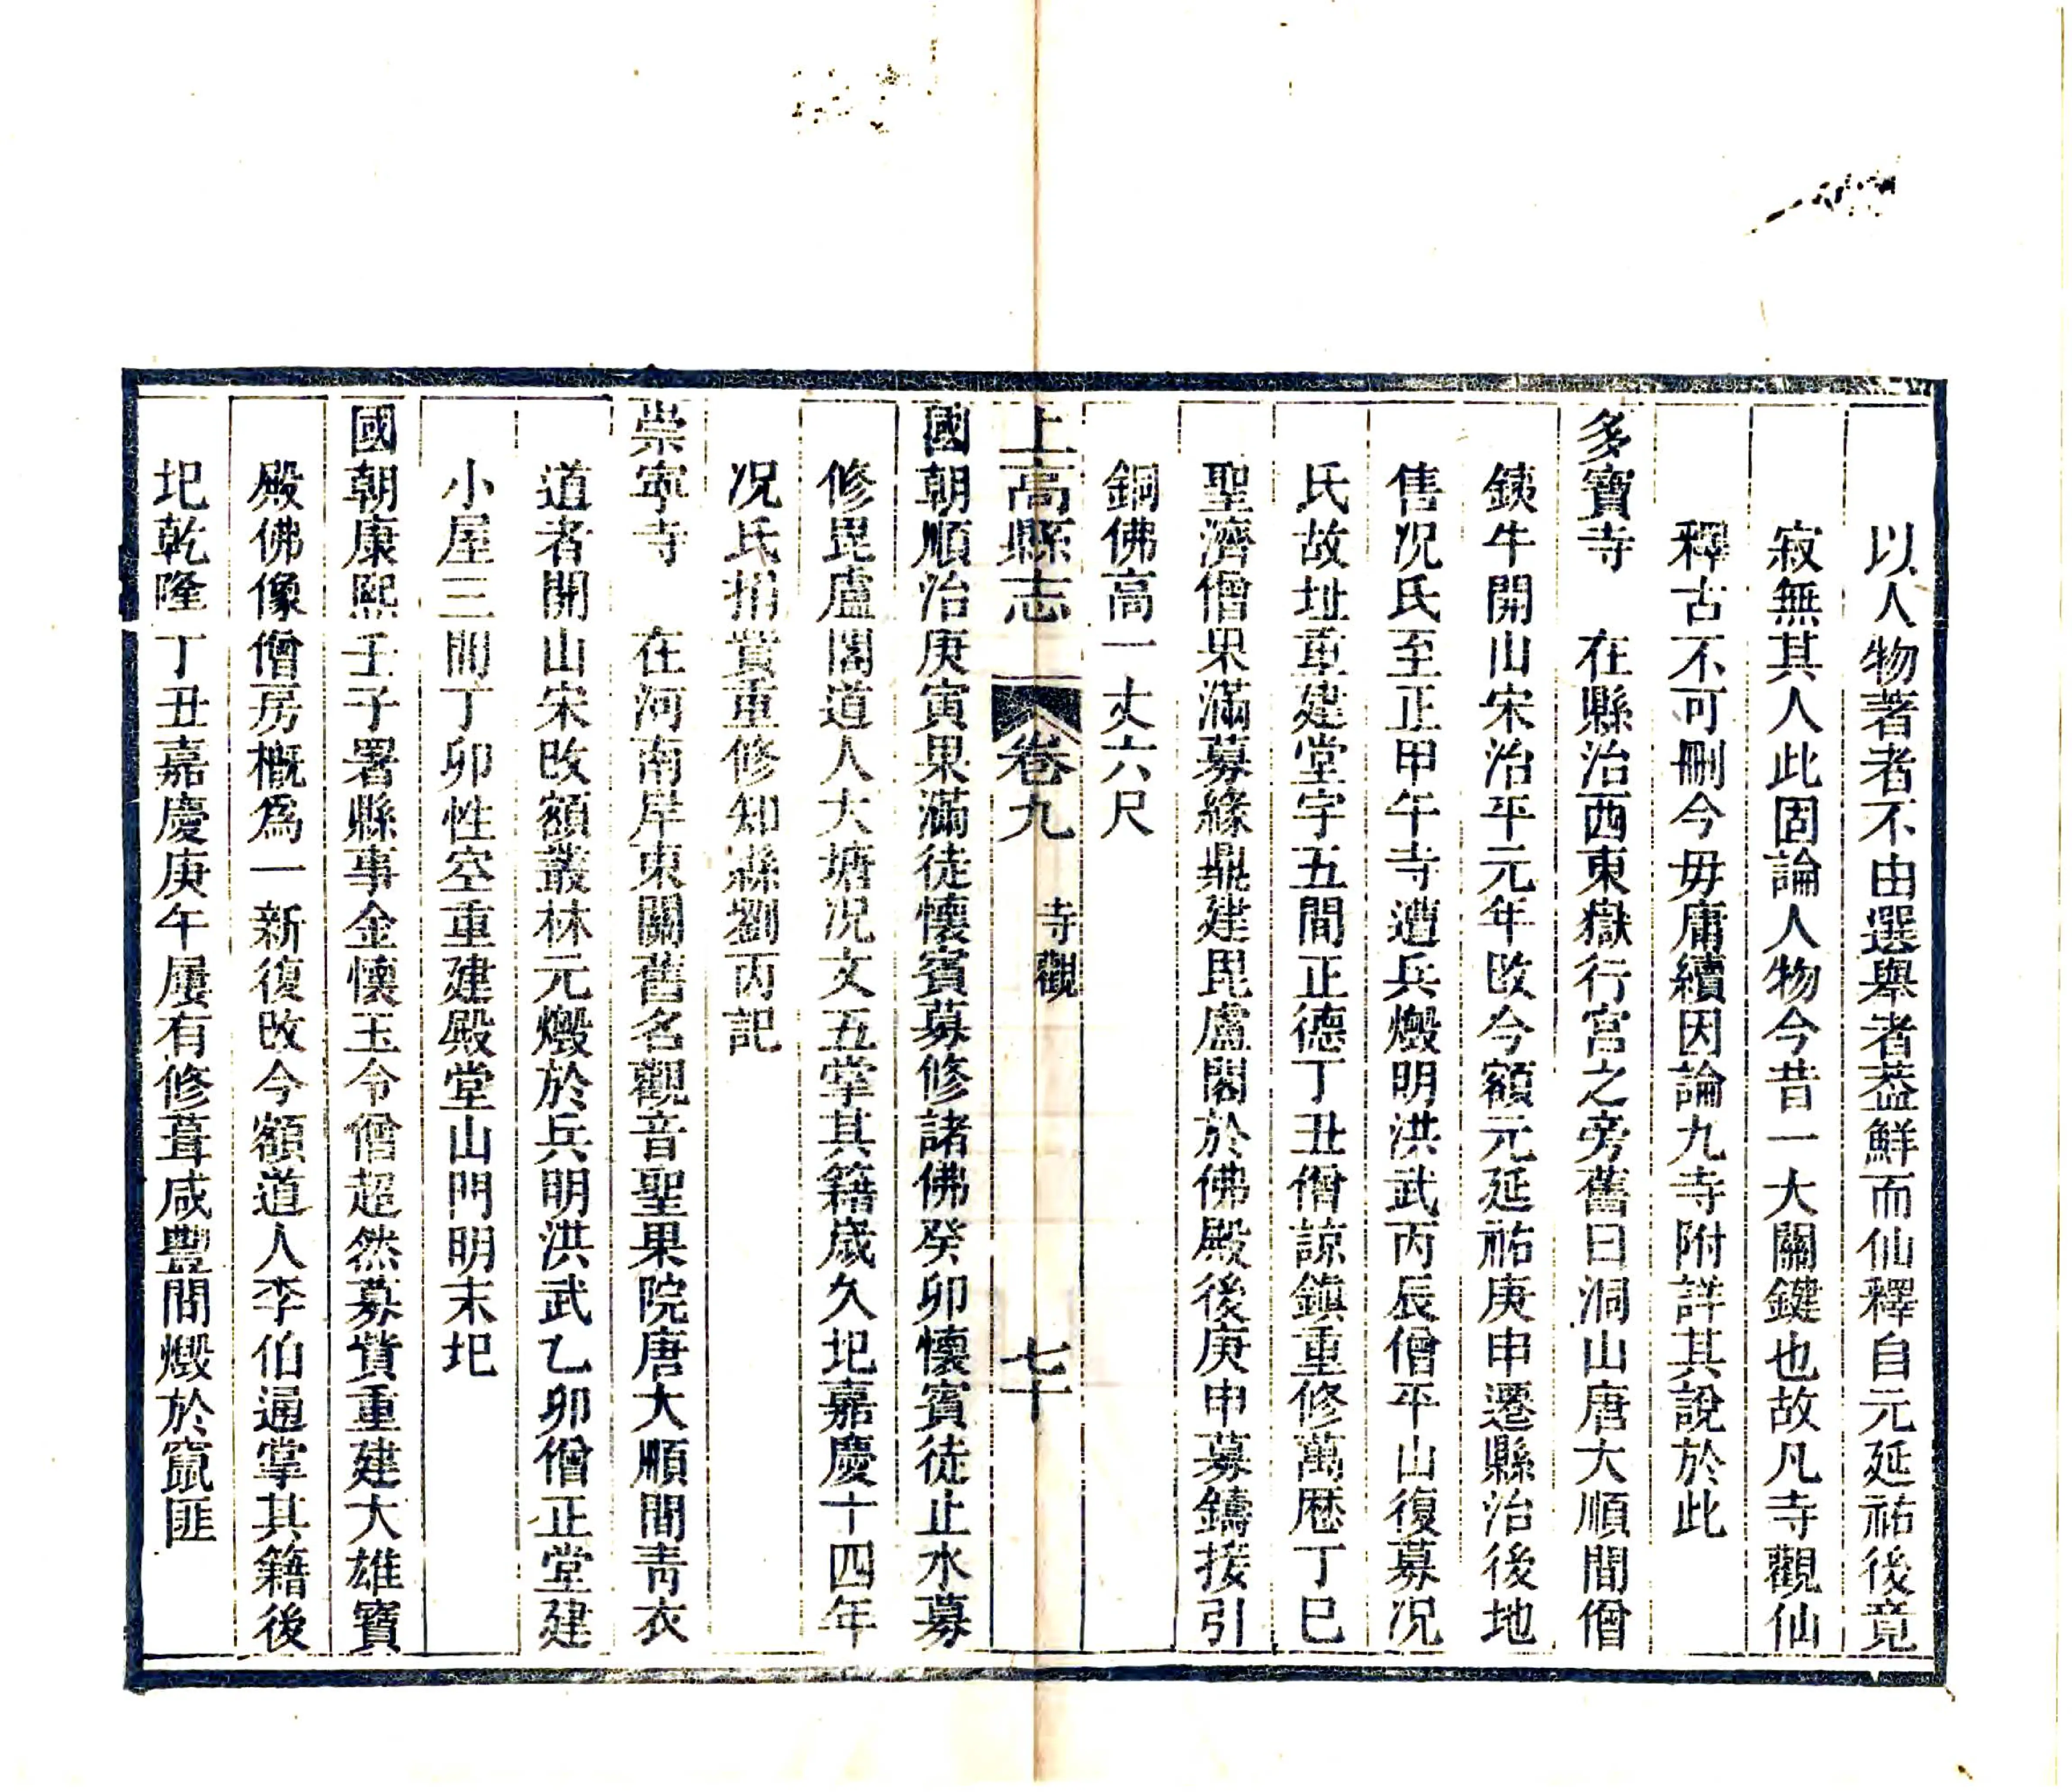 以人物著者不由選舉者葢鮮而仙釋自元延祐後竟
寂無其人此固論人物今昔一大關鍵也故凡寺觀仙
釋古不可刪今毋庸續因論九寺附詳其說於此
多寶寺　在縣治西東嶽行宮之旁舊曰洞山唐大順間僧
銕牛開山宋治平元年改今額元延祐庚申遷縣治後地
售况氏至正甲午寺遭兵燬明洪武丙辰僧平山復募况
氏故址重建堂宇五間正德丁丑僧諒鎮重修萬厯丁巳
聖濟僧果滿募緣鼎建毘盧閣於佛殿後庚申募鑄接引
銅佛高一丈六尺
上高縣志　卷九　寺觀　七十
國朝順治庚寅果滿徒懷賓募修諸佛癸卯懷賓徒止水募
修毘盧閣道人大塘况文五掌其籍歲久圯嘉慶十四年
况氏捐貲重修知縣劉丙記
崇寧寺　在河南岸東關舊名觀音聖果院唐大順間靑衣
道者開山宋改額叢林元燬於兵明洪武乙卯僧正堂建
小屋三間丁卯性空重建殿堂山門明末圯
國朝康熙壬子署縣事金懷玉令僧超然募貲重建大雄寶
殿佛像僧房槪爲一新復改今額道人李伯通掌其籍後
圯乾隆丁丑嘉慶庚午屢有修葺咸豐間燬於竄匪